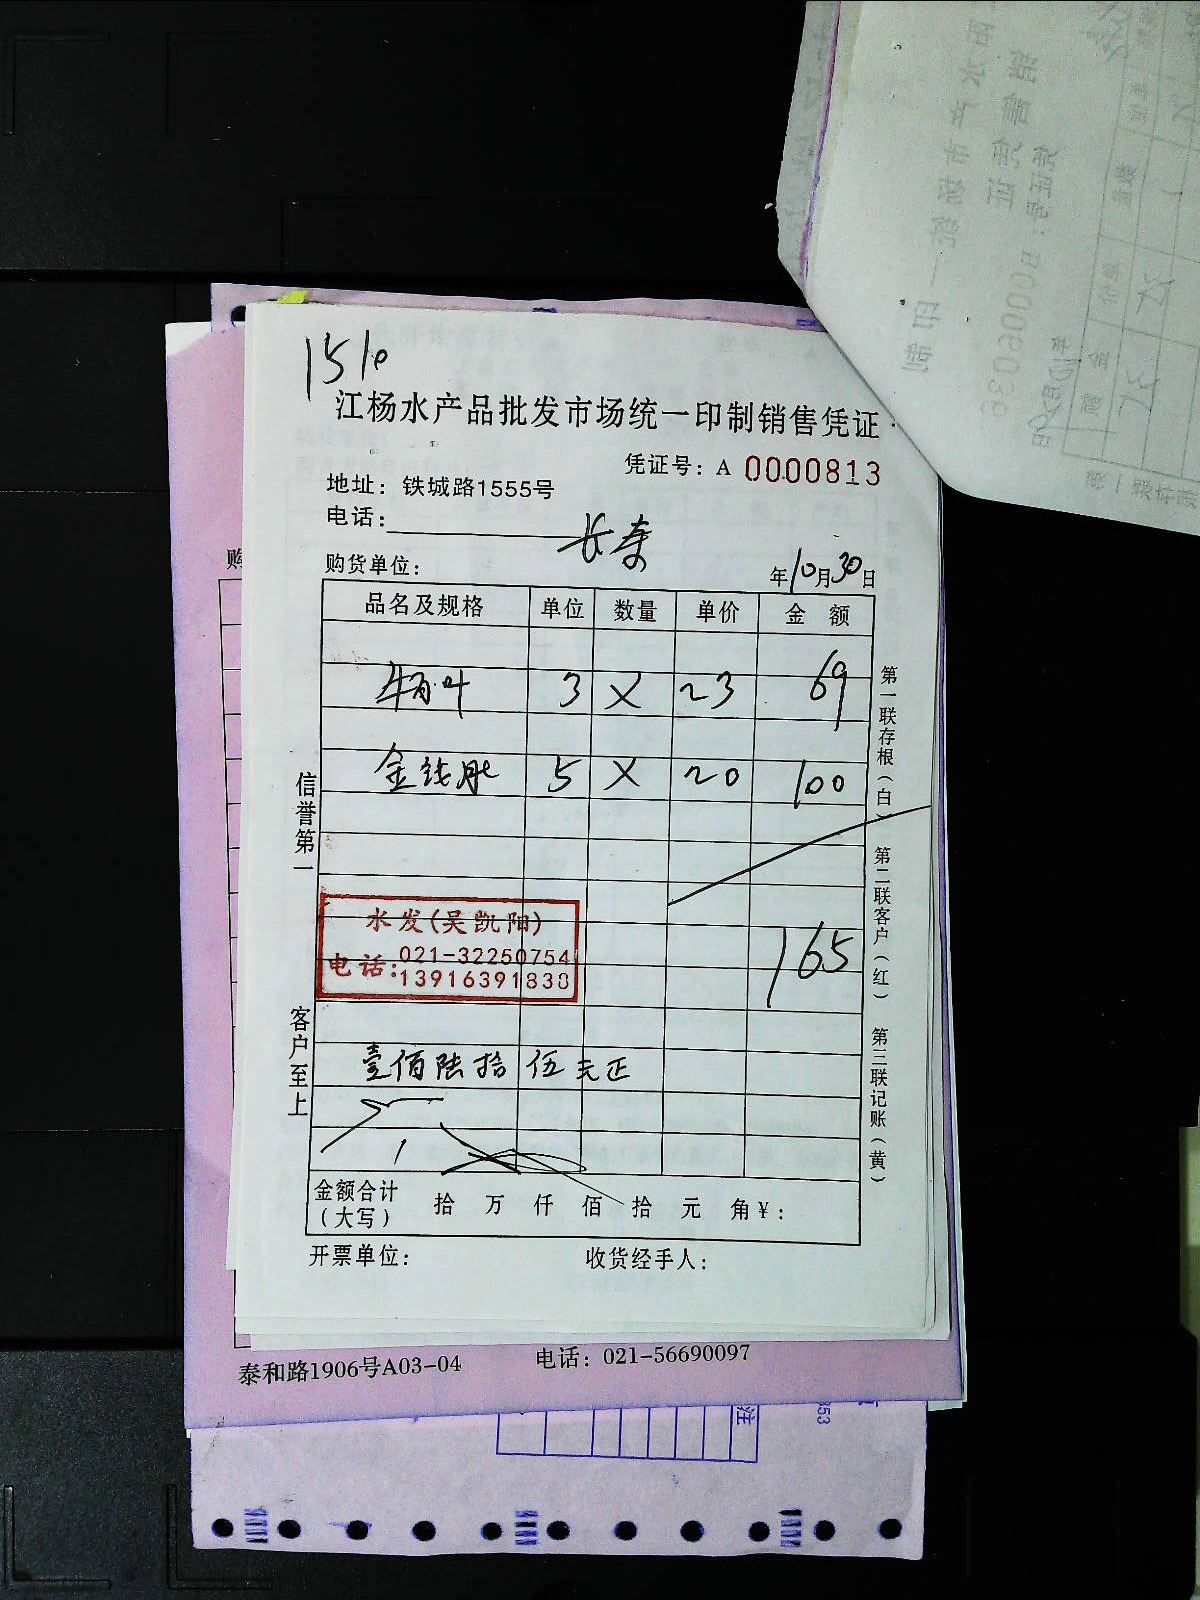 1510
江杨水产品批发市场统一印制销售凭证
凭证号：A 0000813
地址：铁城路1555号
电话：
长泰
购货单位：
年10月30日
品名及规格 单位 数量 单价 金 额
牛百叶 3 X 23 69
金钱肚 5 X 20 100
165
水发(吴凯阳)
电话：021-32250754
13916391838
壹佰陆拾伍元正
金额合计（大写） 拾 万 仟 佰 拾 元 角 ¥：
开票单位： 收货经手人：
信誉第一
客户至上
第一联存根(白)
第二联客户(红)
第三联记账(黄)
购
泰和路1906号A03-04 电话：021-56690097
注
353